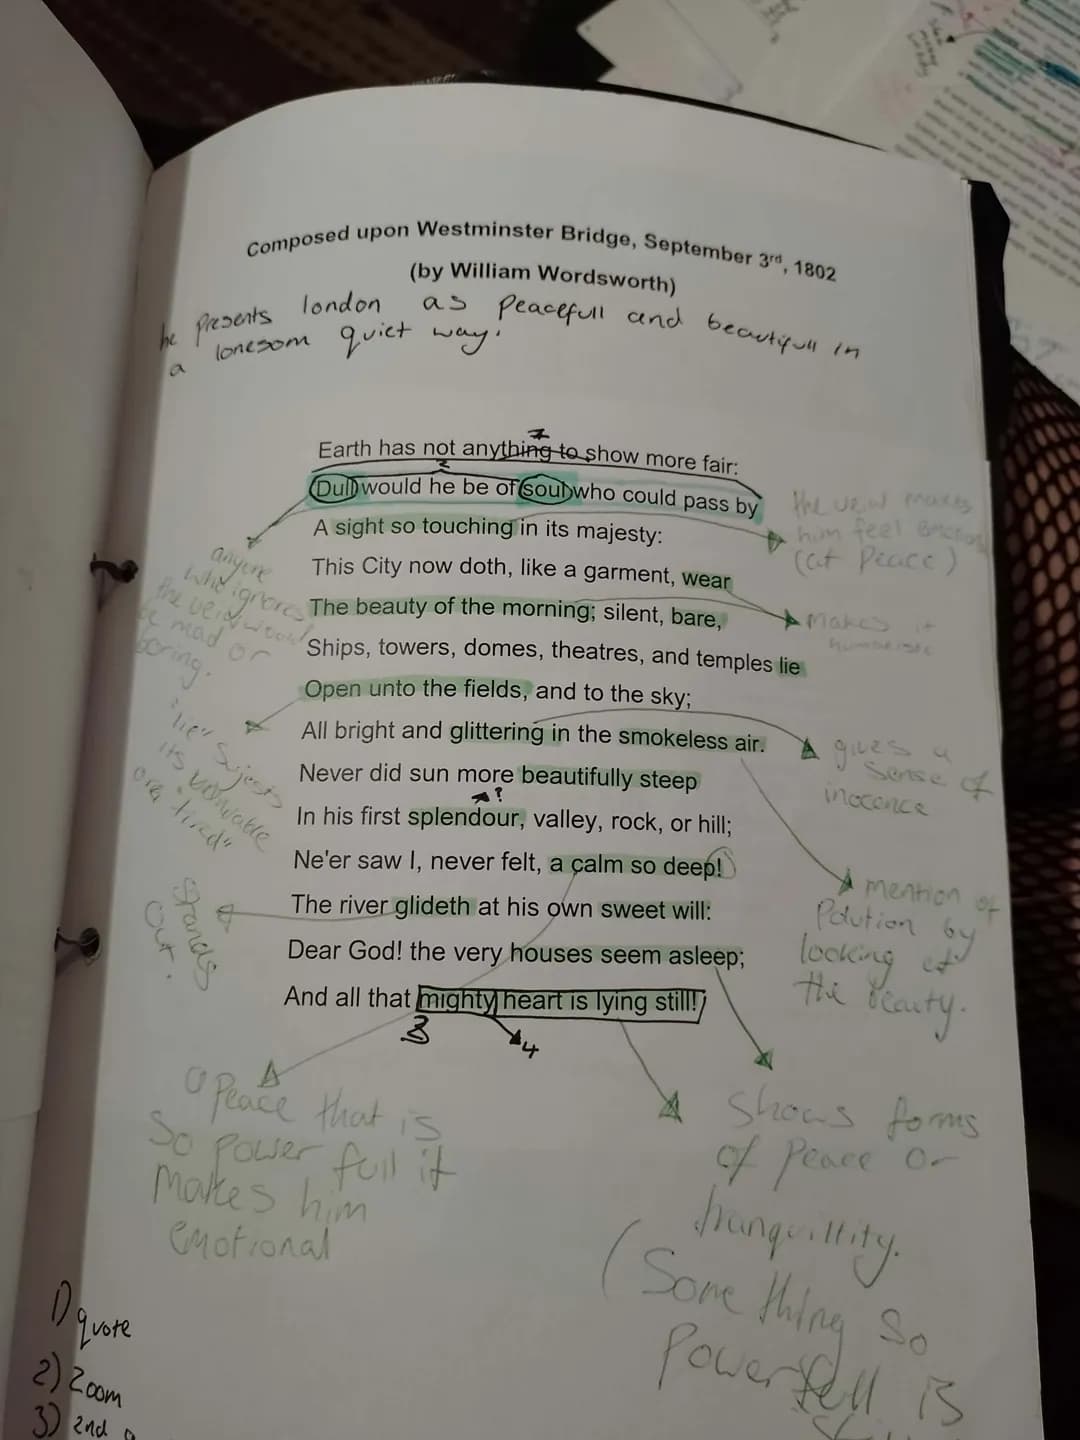 Composed upon Westminster Bridge, September 3rd, 1802
(by William Wordsworth)
he presents london as Peacefull and beautifull in
a lonesom quiet way.
Earth has not anything to show more fair:
2
Dull would he be of soul who could pass by
A sight so touching in its majesty:
This City now doth, like a garment, wear
The beauty of the morning; silent, bare,
Ships, towers, domes, theatres, and temples lie
Open unto the fields, and to the sky;
All bright and glittering in the smokeless air.
Never did sun more beautifully steep
?
In his first splendour, valley, rock, or hill;
Ne'er saw I, never felt, a calm so deep!
The river glideth at his own sweet will:
Dear God! the very houses seem asleep;
And all that mighty heart is lying still!
3
4
the veiw makes
him feel
(at Peace)
makes it
gives a
Sense of
inocence
mention of
Polution by
looking at
the beauty.
anyone
who ignores
the veiw would
be mad or
boring.
"lie" Sujests
its
or "tired"
Stands
out.
Peace that is
So power full it
Makes him
emotional
Shows forms
of Peace or
tranquillity.
(Some thing so
Powerfull is
1) quote
2) Zoom
3) 2nd